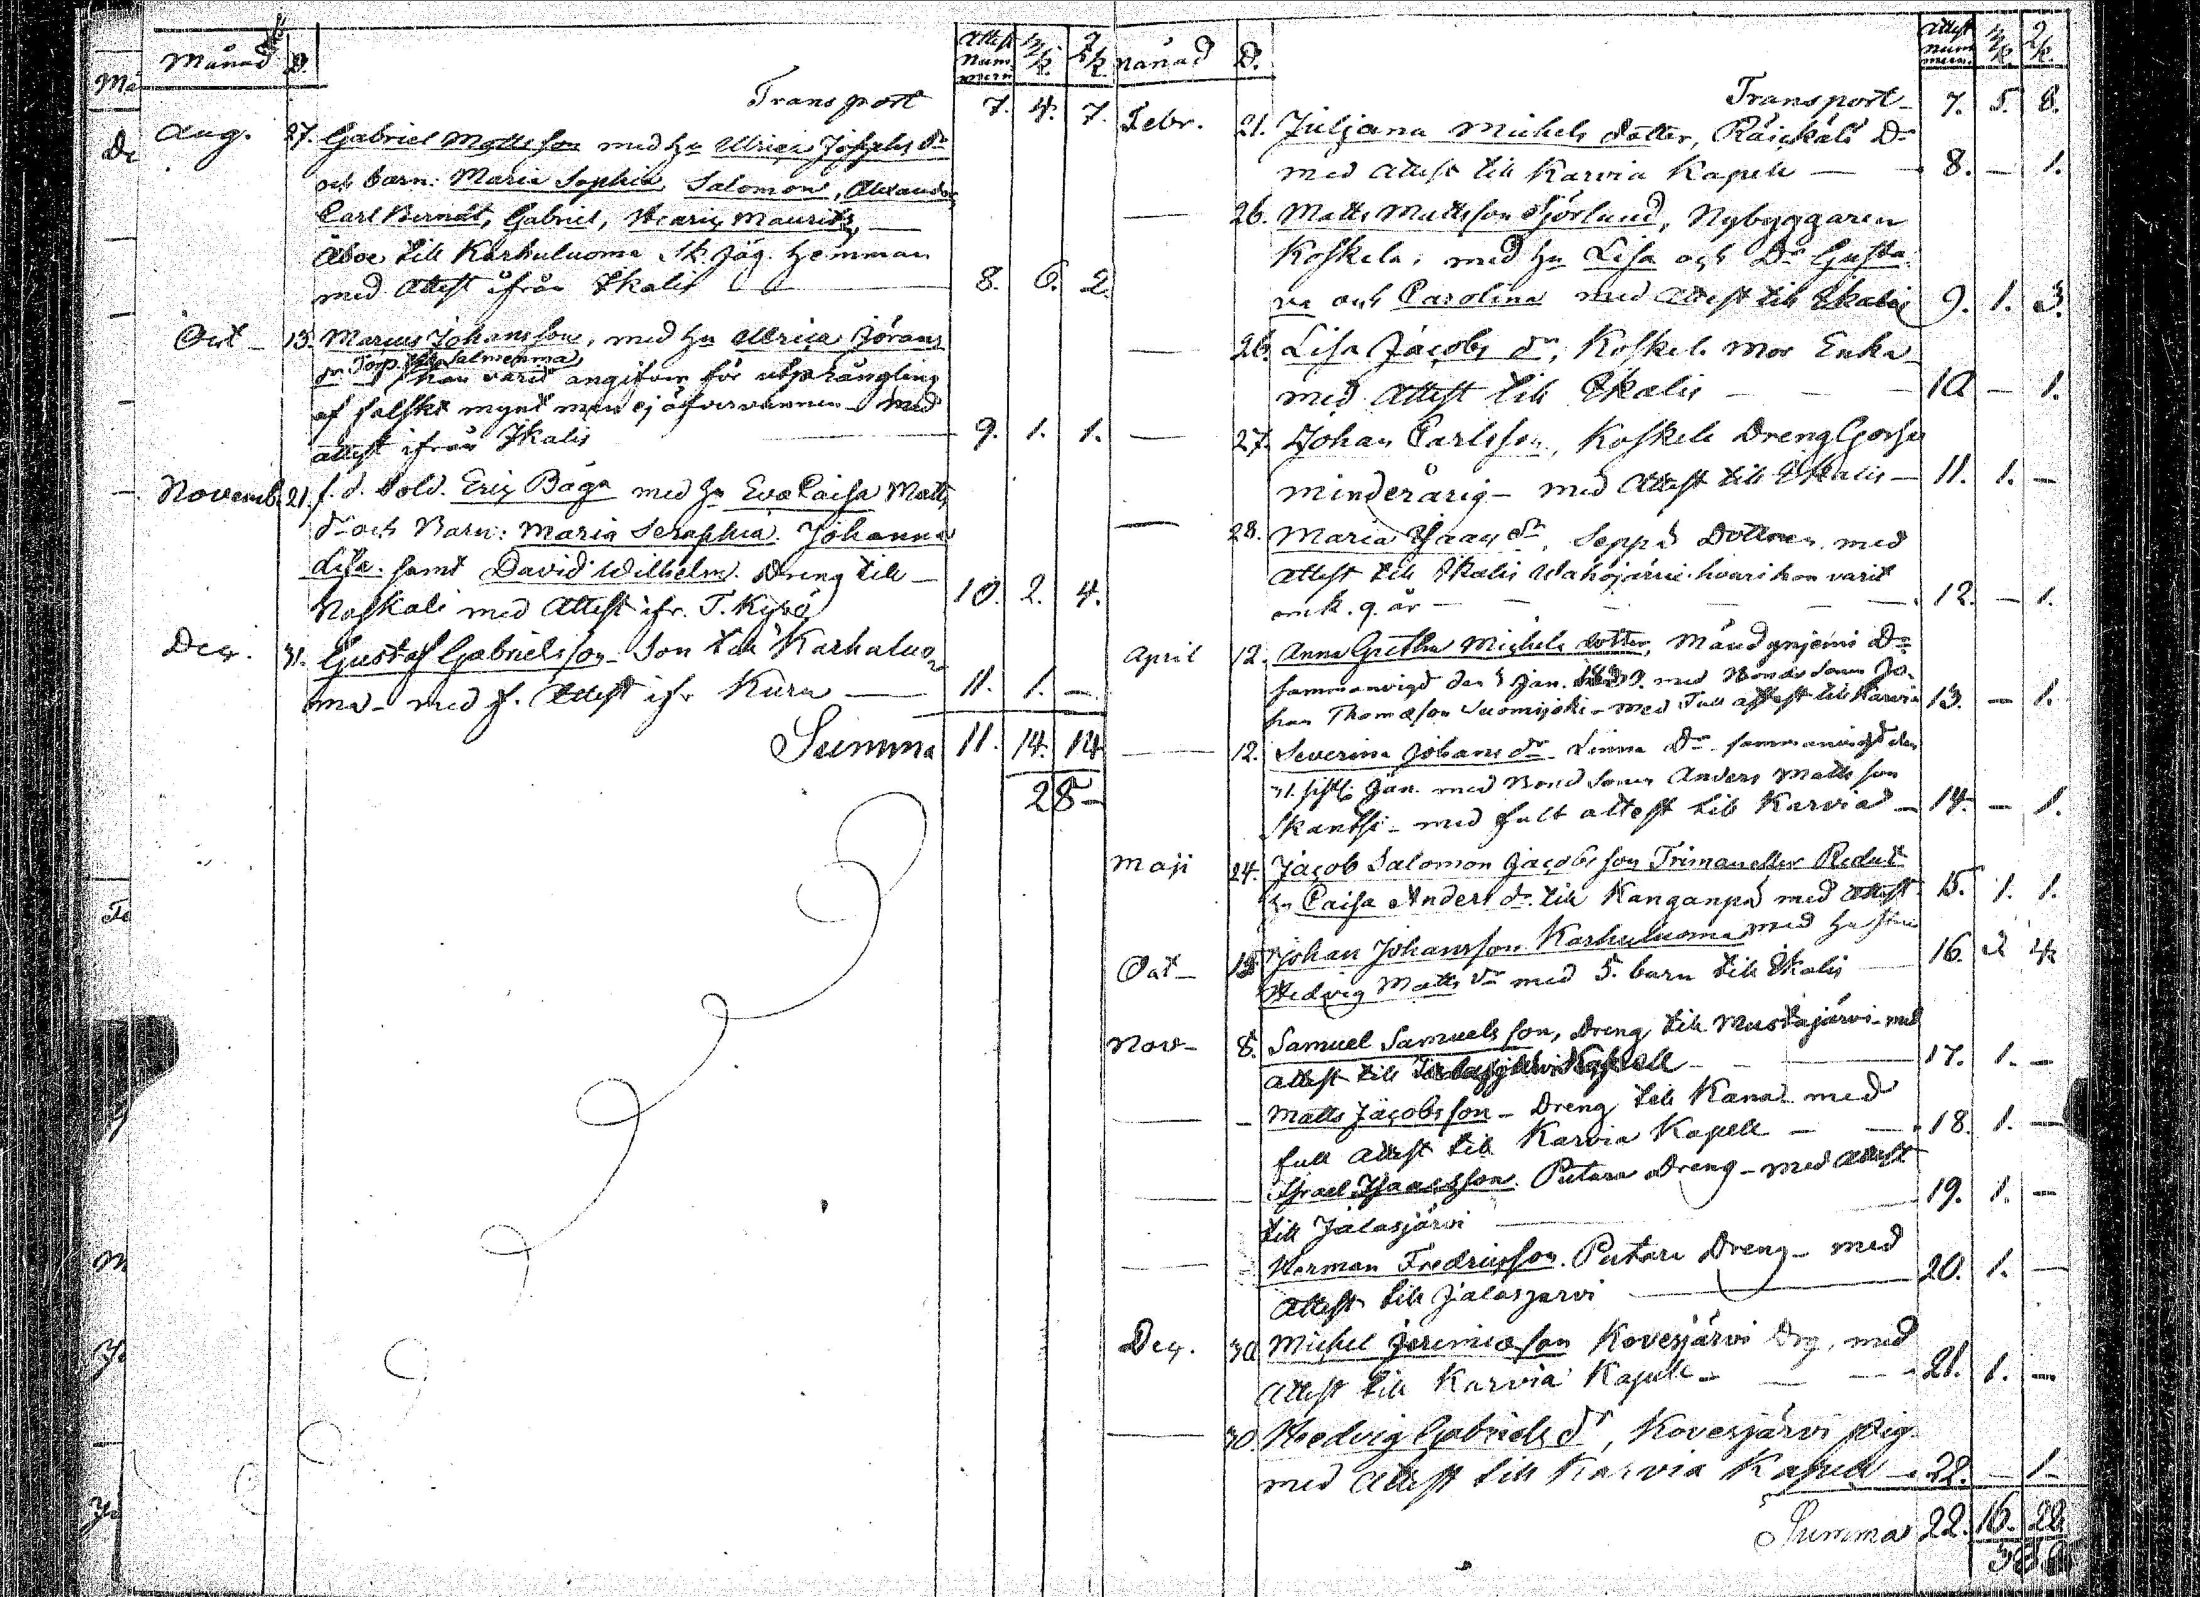 Månad D. Attest Num mern M.k. Q.k.
Transport 7. 4. 7.
Aug. 27. Gabriel Mattsson med hu Ulrica Josephs dr
och barn: Maria Sophia, Salomon, Alexander,
Carl Bernat, Gabriel, Henric Mauritz,
Åboe till Karhuluoma Sk. Jäg. hemman
med attest ifrån Ikalis 8. 6. 2.
Oct 13. Marcus Johansson, med hu Ulrica Jörans
dr Torp. Salmenmaa
han varit angifven för utprångling
af falskt mynt men ej öfvervunnen med
attest ifrån Ikalis 9. 1. 1.
Novemb. 21. f. d. Sold. Eric Båga med hu Eva Caisa Matts
dr och Barn: Maria Seraphia. Johanna
Lisa. samt David Wilhelm. Dreng till
Koskeli med Attest ifr. T. Kyrö 10. 2. 4.
Dec. 31. Gustaf Gabrielsson Son till Karhaluo
ma med f. Attest ifr Kuru 11. 1. —
Summa 11. 14. 14
28 —
Månad D. Attest Num mern M.k. Q.k.
Transport 7. 5. 8.
Febr. 21. Juljana Michels dotter, Räickälä Dr
med attest till Karvia Kapell 8. — 1.
— 26. Matts Mattsson Sjörlund, Nybyggaren
Koskela, med hu Lisa och Dr Gusta
va och Carolina med Attest till Ikalis 9. 1. 3.
— 26. Lisa Jacobs dr, Koskela mor Enka
med Attest till Ikalis 10 — 1.
— 27. Johan Carlsson, Koskela Dreng Gosse
minderårig — med Attest till Ikalis — 11. 1. —
— 28. Maria Isaacs dr, Seppä Dotter med
attest till Ikalis Wahojärvi hvari hon varit
omk. 9. år — 12. — 1.
April 12. Anna Gretha Michels dotter, Dr
sammanvigd den Jan. med Bonde Sonen Jo-
han Thomasson Suomijoki — med Full attest till Karvia 13. — 1.
— 12. Severina Johans dr Linna Dr sammanvigd den
31. sistl. Jan. med Bond Sonen Anders Mattsson
Skantsi — med fult attest till Karvia — 14. — 1.
Maji 24. Jacob Salomon Jacobsson Trimaneller Redut
hu Caisa Anders dr till Kanganpä med attest 15. 1. 1.
Oct — 15 Johan Johansson Karhuluoma med hustru
Hedvig Matts dr med 5. barn till Ikalis 16. 2 4
Nov — 8. Samuel Samuelsson, Dreng till Mustajärvi — med
attest till Kapell 17. 1. —
— Matts Jacobsson — Dreng till Kana med
full attest till Karvia Kapell — 18. 1. —
— Israel Isaacsson Putara Dreng — med attest
till Jalasjärvi 19. 1. —
— Herman Fredricsson. Putara Dreng — med
Attest till Jalasjärvi 20. 1. —
Dec. 30 Michel Jeremiasson Kovesjärvi Drg, med
Attest till Karvia Kapell — 21. 1. —
— 30 Hedvig Gabriels dr, Kovesjärvi pig
med attest till Karvia Kapell — 22. — 1.
Summa 22. 16. 22
38